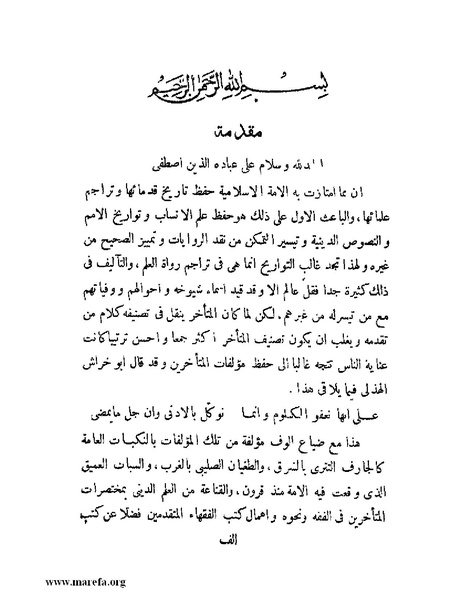 بسم الله الرحمن الرحيم
مقدمة
الحمد لله وسلام على عباده الذين اصطفى
ان مما امتازت به الامة الاسلامية حفظ تاريخ قدمائها وتراجم
علمائها، والباعث الاول على ذلك هو حفظ علم الانساب وتواريخ الامم
والنصوص الدينية وتيسير التمكن من نقد الروايات وتمييز الصحيح من
غيره ولهذا تجد غالب التواريخ انما هى فى تراجم رواة العلم، والتآليف فى
ذلك كثيرة جدا فقل عالم الا وقد قيد اسماء شيوخه واحوالهم ووفياتهم
مع من تيسر له من غيرهم. لكن لما كان المتأخر ينقل فى تصنيفه كلام من
تقدمه ويغلب ان يكون تصنيف المتأخر اكثر جمعا واحسن ترتيبا كانت
عناية الناس تتجه غالبا الى حفظ مؤلفات المتأخرين وقد قال ابو خراش
الهذلى فيما يلاقى هذا.
عـلى انها تعفو الكلوم وانمـا نوكّل بالادنى وان جل مايمضى
هذا مع ضياع الوف مؤلفة من تلك المؤلفات بالنكبات العامة
كالجارف التترى بالشرق، والطغيان الصليبى بالغرب، والسبات العميق
الذى وقعت فيه الامة منذ قرون، والقناعة من العلم الدينى بمختصرات
المتأخرين فى الفقه ونحوه واهمال كتب الفقهاء المتقدمين فضلا عن كتب
الف
www.marefa.org